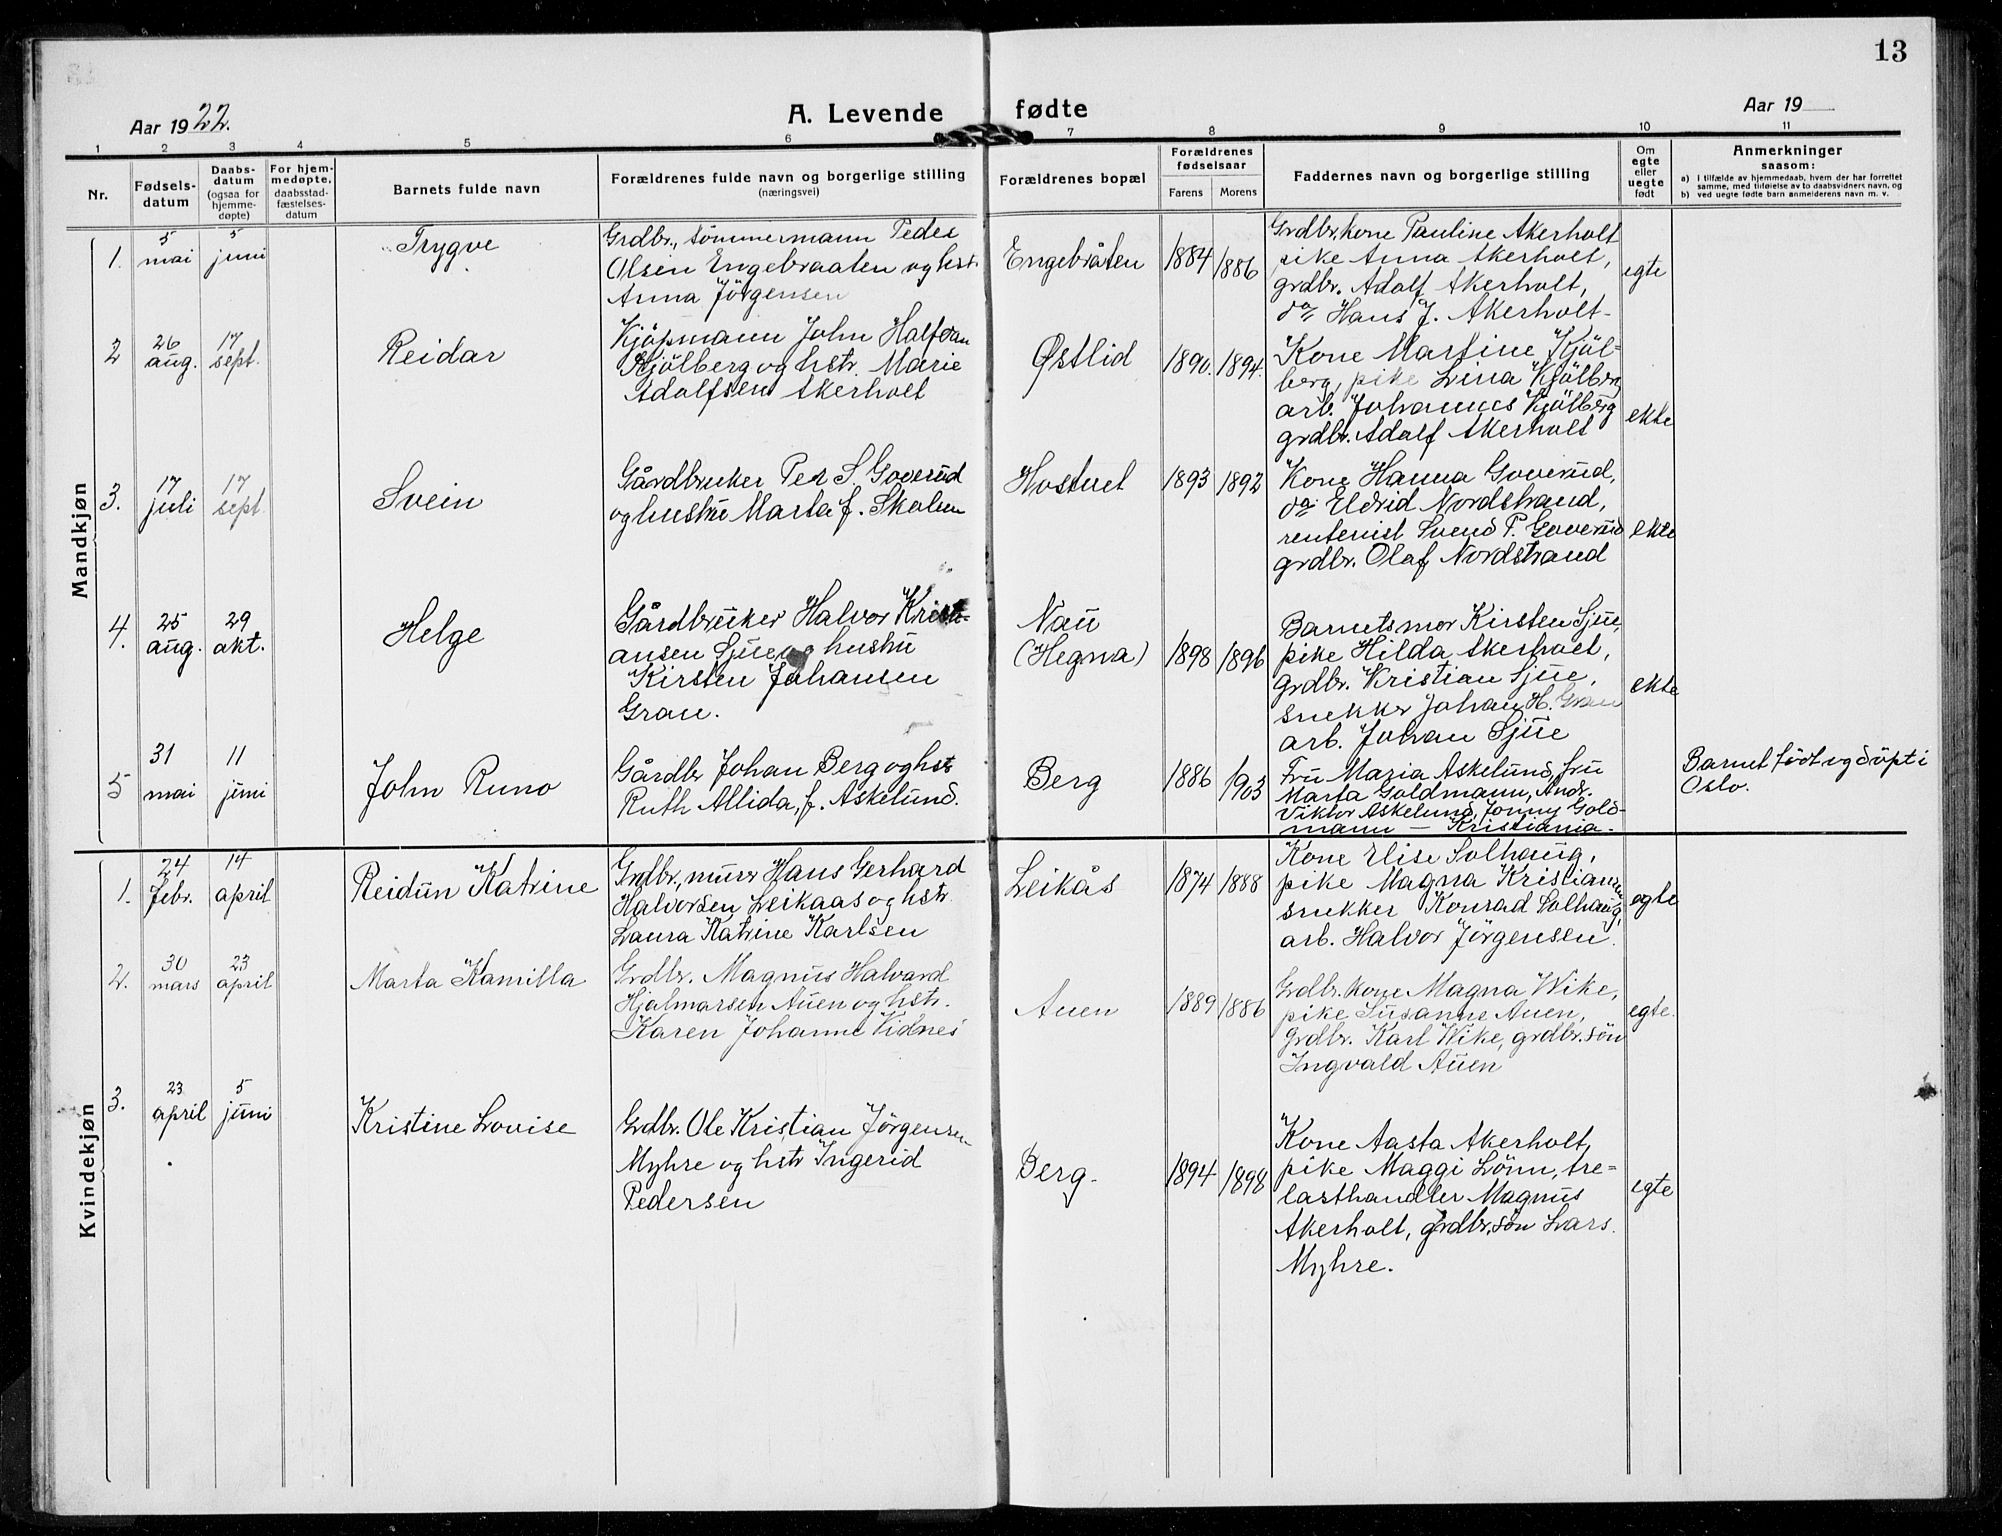 13
Aar 1922.
A. Levende fødte
Aar 19
1 2 3 4 5 6 7 8 9 10 11
Nr.
Fødsels-
datum
Daabs-
datum
(ogsaa for
hjemme-
døpte)
For hjem-
medøpte,
daabsstad-
fæstelses-
datum
Barnets fulde navn
Forældrenes fulde navn og borgerlige stilling
(næringsvei)
Forældrenes bopæl
Forældrenes
fødselsaar
Farens
Morens
Faddernes navn og borgerlige stilling
Om
egte
eller
uegte
født
Anmerkninger
saasom:
a) I tilfælde av hjemmedaab, hvem der har forrettet
samme, med tilføielse av to daabsvidners navn, og
b) ved uegte fødte barn anmelderens navn m. v.
Mandkjøn
1.
5
mai
5
juni
Trygve
Grdbr., tömmermann Peder
Olsen Engebraaten og hst.
Anna Jörgensen
Engebråten
1884
1886
Grdbr.kone Pauline Akerholt
pike Anna Akerholt,
grdbr. Adolf Akerholt,
do Hans J. Akerholt
egte
2
26
aug.
17
sept.
Reidar
Kjöpmann John Halfdan
Kjölberg og hstr. Marie
Adolfsen Akerholt
Østlid
1890.
1894.
Kone Martine Kjöl-
berg, pike Lina Kjölberg
arb. Johannes Kjölberg
grdbr. Adolf Akerholt
ekte
3.
17
juli
17
sept.
Svein
Gårdbruker Per S. Goverud
og hustru Marta f. Skolsen
Hostvet
1893
1892
Kone Hanna Goverud,
do Eldrid Nordstrand,
rentenist Svend P. Goverud
grdbr. Olaf Nordstrand
ekte
4.
25
aug.
29
okt.
Helge
Gårdbruker Halvor Kristi-
ansen Sjue og hustru
Kirsten Johansen
Gran.
Nau
(Hegna)
1898
1896
Barnets mor Kirsten Sjue,
pike Hilda Akerholt,
grdbr. Kristian Sjue,
snekker Johan H. Gran
arb. Johan Sjue
ekte
5
31
mai
11
juni
John Runo
Gårdbr Johan Berg og hst
Ruth Allida, f. Askelund.
Berg
1886
1903
Fru Maria Askelund, fru
Marta Goldmann, Andr.
Viktor Askelund, Jonny Gold-
mann — Kristiania.
Barnet født og döpt i
Oslo.
Kvindekjøn
1.
24
febr.
14
april
Reidun Katrine
Grdbr., murer Hans Gerhard
Halvorsen Leikaas og hstr.
Laura Katrine Karlsen
Leikås
1874
1888
Kone Elise Solhaug,
pike Magna Kristiansen
snekker Konrad Solhaug,
arb. Halvor Jörgensen.
egte
2.
30
mars
23
april
Marta Kamilla
Grdbr. Magnus Halvard
Hjalmarsen Auen og hstr.
Karen Johanne Vidnes
Auen
1889
1886
Grdbr.kone Magna Wike,
pike Susanne Auen,
Grdbr. Karl Wike, grdbr.sön
Ingvald Auen
egte.
3.
23
april
5
juni
Kristine Lovise
Grdbr. Ole Kristian Jörgensen
Myhre og hstr Ingerid
Pedersen
Berg.
1894
1898
Kone Aasta Akerholt,
pike Maggi Lönn, tre-
lasthandler Magnus
Akerholt, grdbr.sön Lars
Myhre.
egte